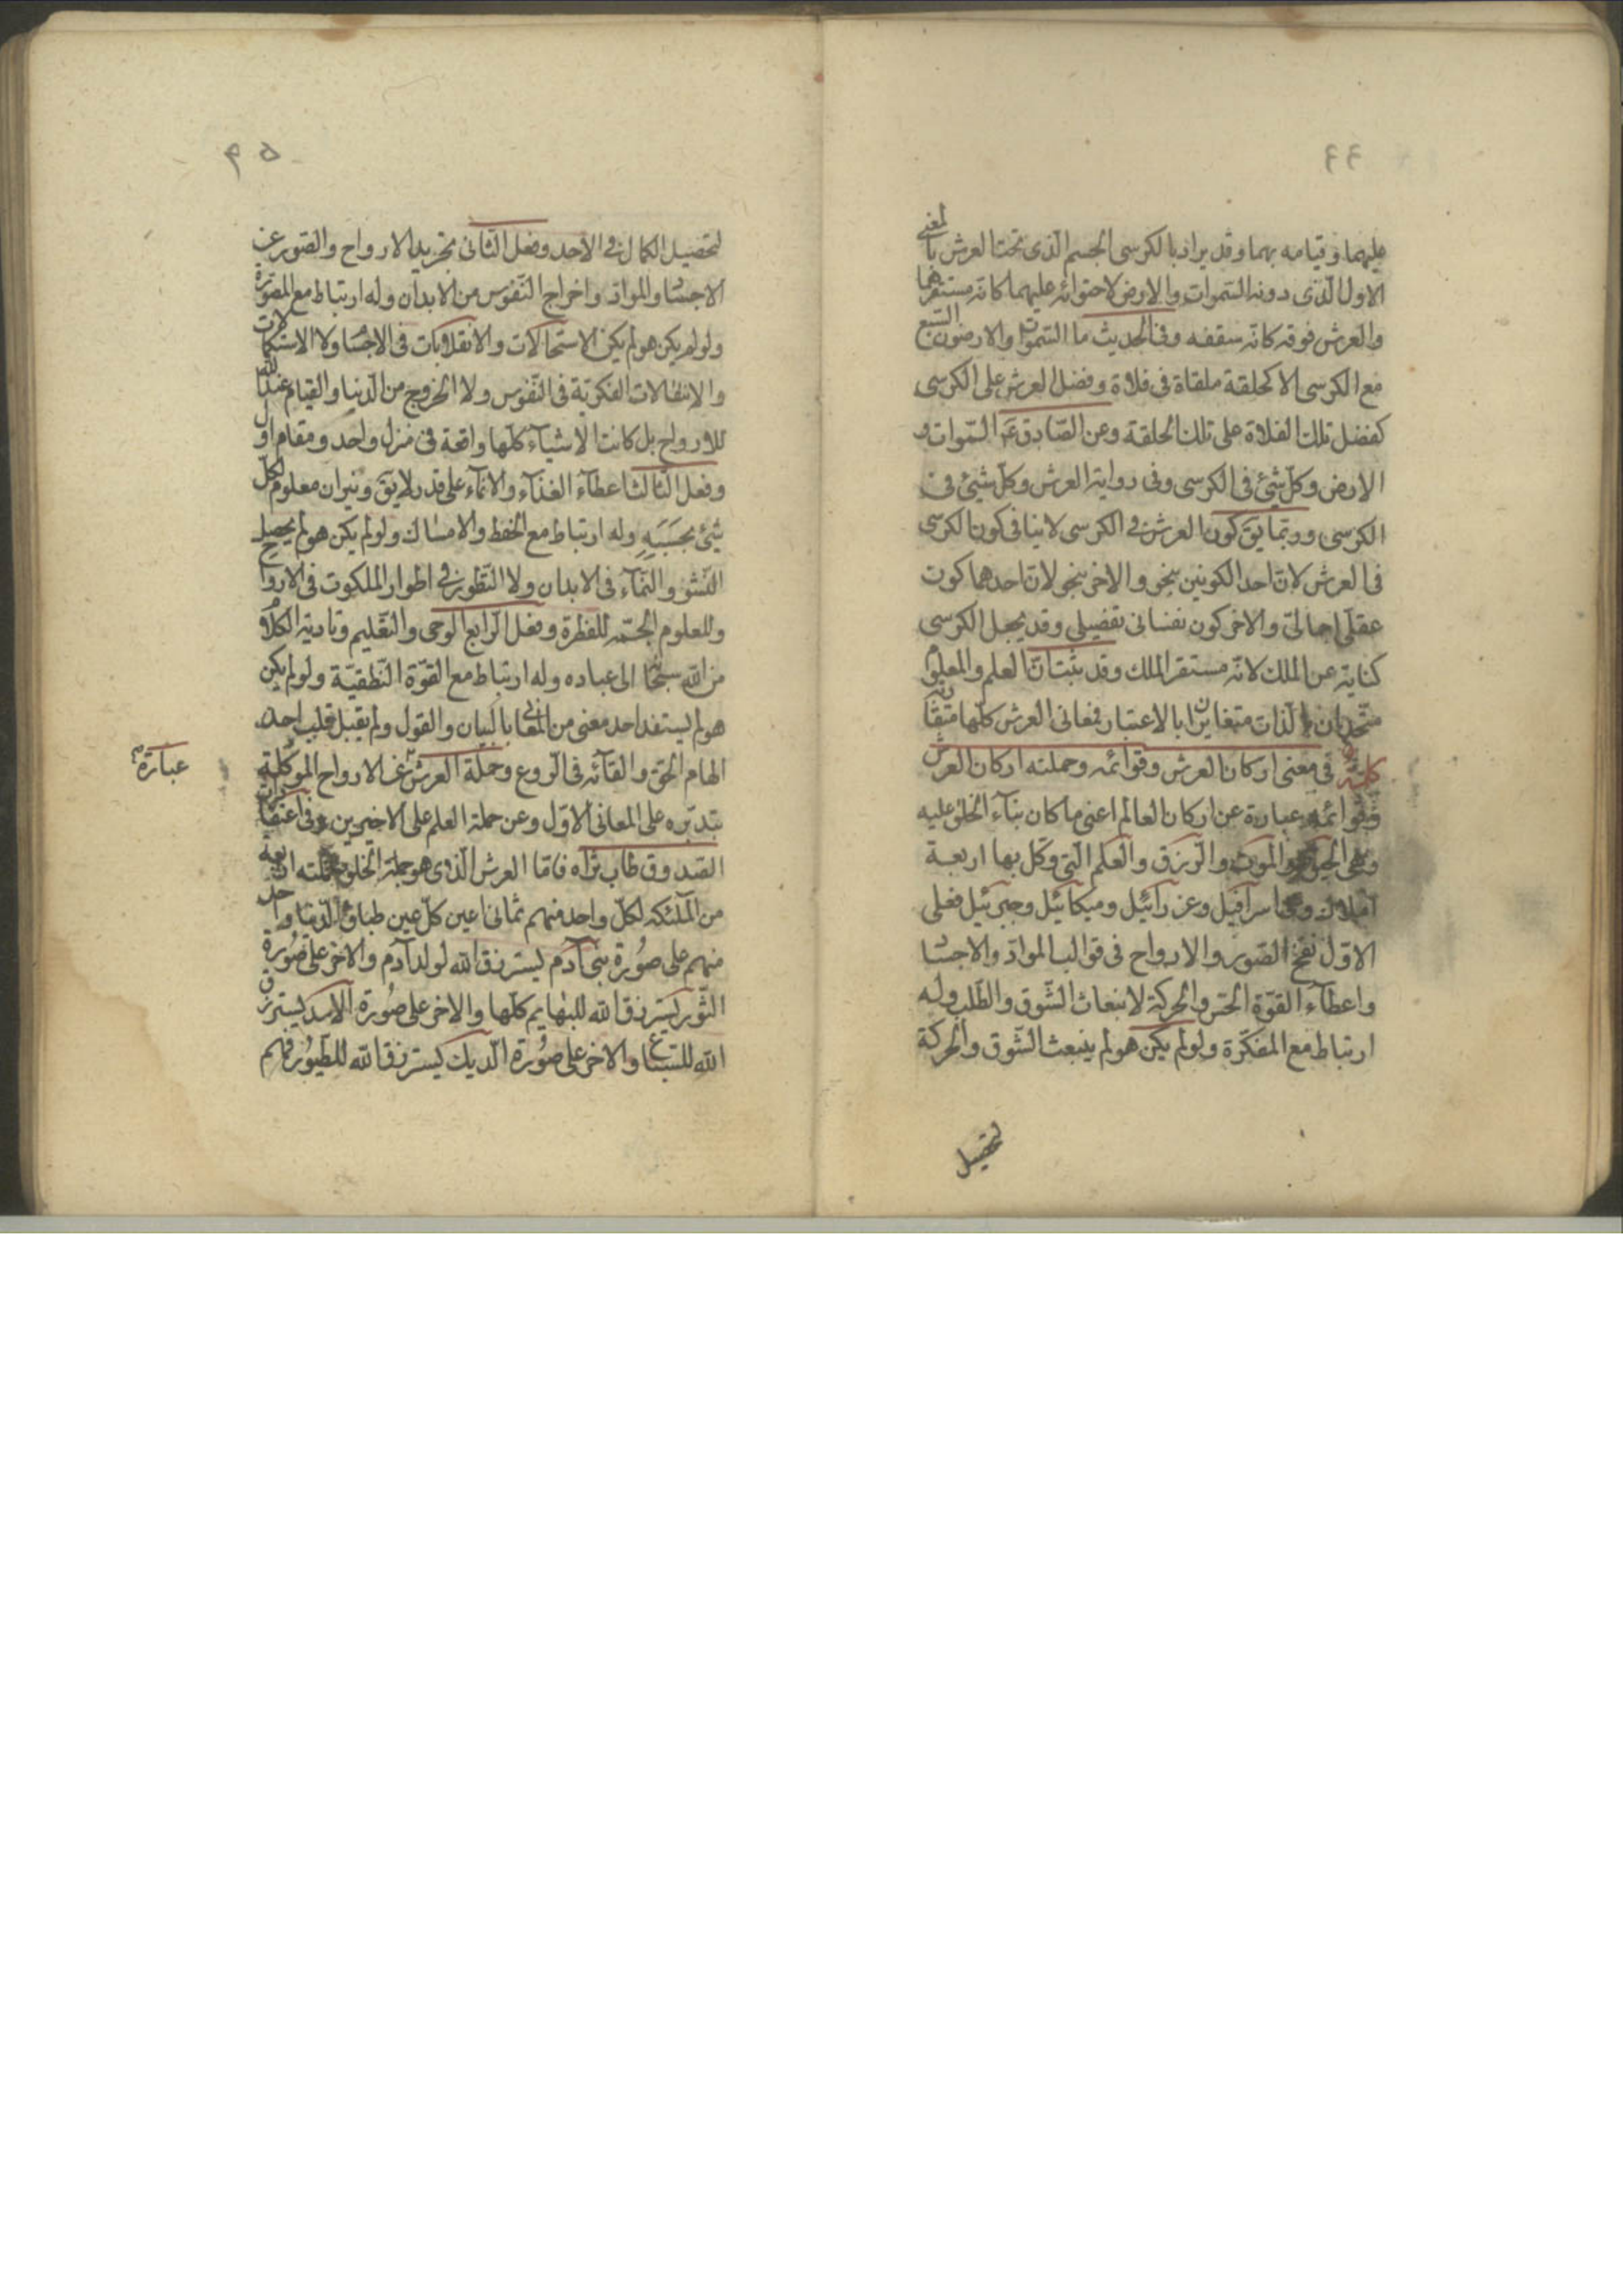 ٤٤
عليهما وقيامه بهما وقد يراد بالكرسى الجسم الذى تحت العرش بالمعنى
الاول الذى دونه السموات والارض لاحتوائه عليهما كانه مستقرهما
والعرش فوقه كانه سقفه وفى الحديث ما السموات والارضون السبع
مع الكرسى الا كحلقة ملقاة فى فلاة وفضل العرش على الكرسى
كفضل تلك الفلاة على تلك الحلقة وعن الصادق ع السموات و
الارض وكل شئ فى الكرسى وفى رواية العرش وكل شئ فى
الكرسى وربما يق كون العرش فى الكرسى لاينافى كون الكرسى
فى العرش لان احد الكونين بنحو والاخر بنحو لان احدهما كون
عقلى اجمالى والاخر كون نفسانى تفصيلى وقد يجعل الكرسى
كناية عن الملك لانه مستقر الملك وقد يثبت ان العلم والمعلوم
متحدان بالذات متغايران بالاعتبار فمعانى العرش كلها متقاربة
كلمة فى معنى اركان العرش وقوائمه وحملته اركان العرش
وقوائمه عبارة عن اركان العالم اعنى ما كان بناء الخلق عليه
وهى الحيوة والموت والرزق والعلم التى وكل بها اربعة
املاك اسرافيل وعزرائيل وميكائيل وجبرئيل ففعل
الاول نفخ الصور والارواح فى قوالب المواد والاجسا
واعطاء القوة الحس والحركة لانبعاث الشوق والطلب وله
ارتباط مع المفكرة ولو لم يكن هو لم ينبعث الشوق والحركة
لتحصيل
٤٥
لتحصيل الكمال فى الاحد وفعل الثانى تجريد الارواح والصور عن
الاجسا والمواد واخراج النفوس من الابدان وله ارتباط مع المصورة
ولو لم يكن هو لم يكن الاستحالات والانقلابات فى الاجسا ولا الاستكمالات
والانتقالات الفكرية فى النفوس ولا الخروج من الدنيا والقيام عند الله
للارواح بل كانت الاشياء كلها واقعة فى منزل واحد ومقام اول
وفعل الثالث اعطاء الغذاء والانماء على قدر لايق وميزان معلوم لكل
شئ بحسبه وله ارتباط مع الحفظ والامساك ولو لم يكن هو لم يحصل
النشو والنماء فى الابدان ولا التطور فى اطوار الملكوت فى الارواح
وللعلوم الجمه للفطرة وفعل الرابع الوحى والتعليم وتادية الكلام
من الله سبحا الى عباده وله ارتباط مع القوة النطقية ولو لم يكن
هو لم يستفد احد معنى من المعانى بالبيان والقول ولم يقبل قلب احد
الهام الحق والقائه فى الروع وحملة العرش عن الارواح الموكلة
عبارة
بتدبره على المعانى الاول وعن حملة العلم على الاخيرين وفى اعتقادات
الصدوق طاب ثراه فاما العرش الذى هو جملة الخلق فحملته اربعة
من الملئكة لكل واحد منهم ثمانى اعين كل عين طباق الدنيا واحد
منهم على صورة بنى آدم يسترزق الله لولد آدم والاخر على صورة
الثور يسترزق الله للبهايم كلها والاخر على صورة الاسد يسترزق
الله للسباع والاخر على صورة الديك يسترزق الله للطيور فهم